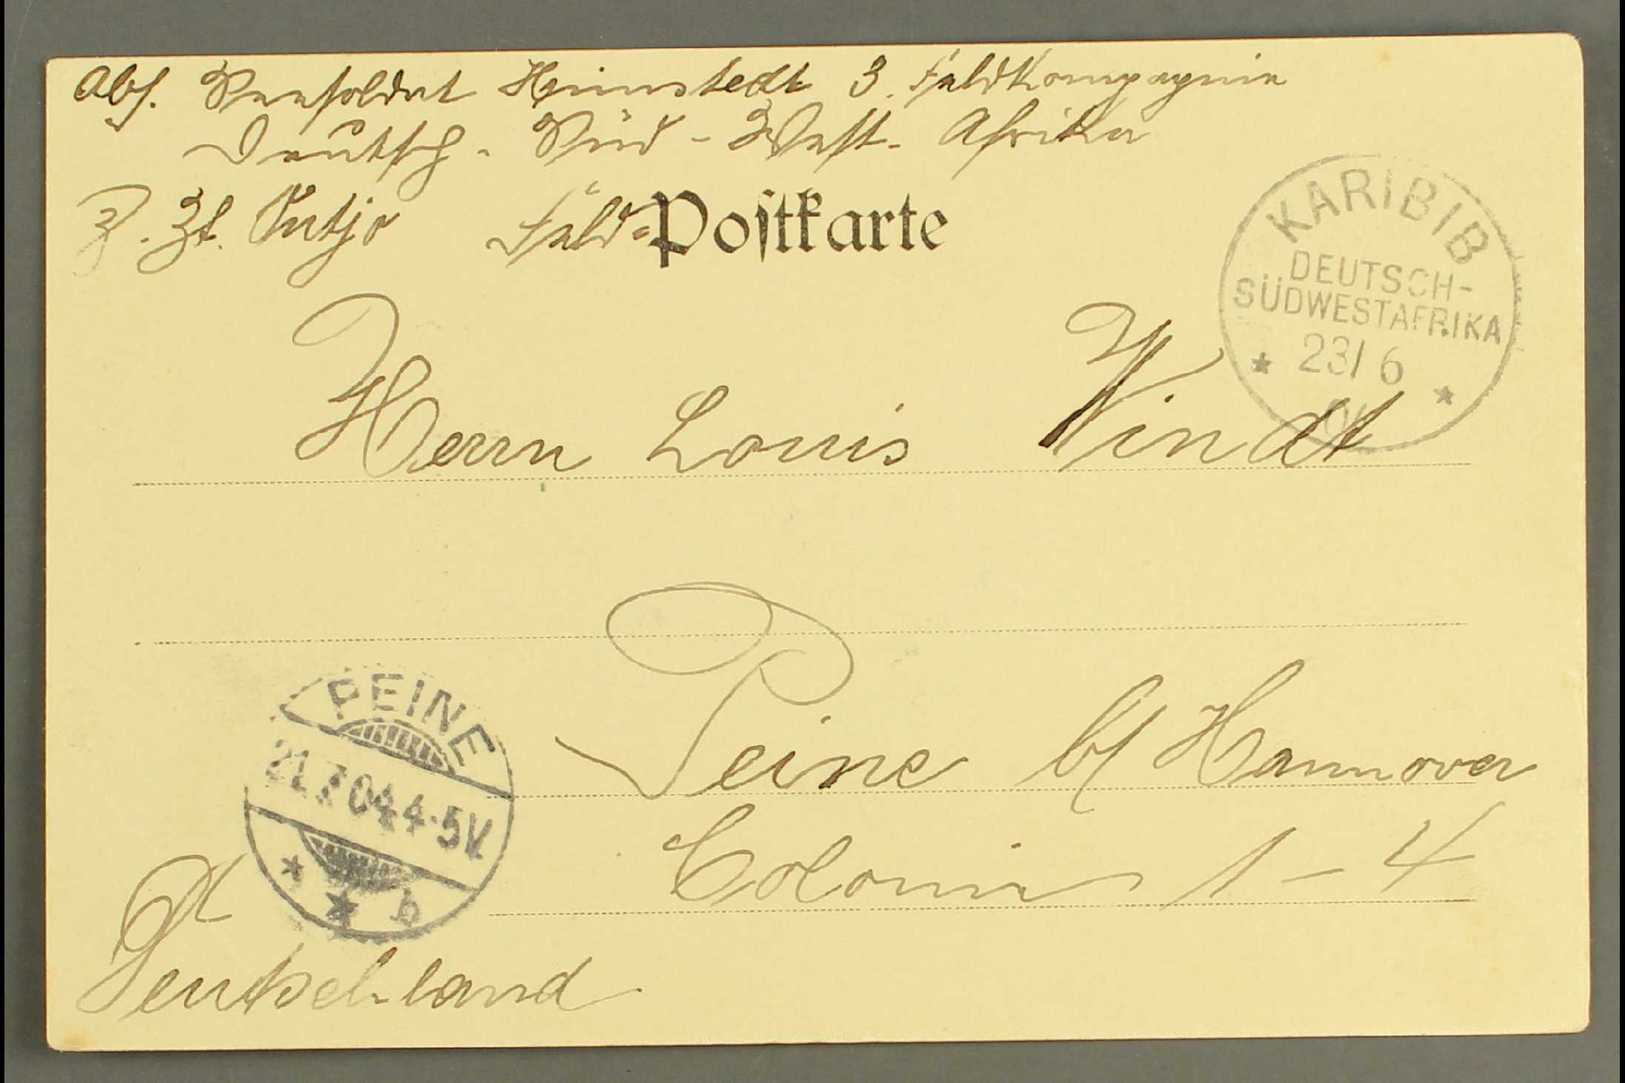 Abs. Seesoldat Heimstedt 3. Feldkompagnie
Deutsch-Süd-West-Afrika
z. Zt. Outjo Feld=Postkarte
KARIBIB
DEUTSCH-
SÜDWESTAFRIKA
23/6
Herrn Louis Windt
Peine b/ Hannover
Colonie 1-4
PEINE
21.7.04.4-5V.
b
Deutschland